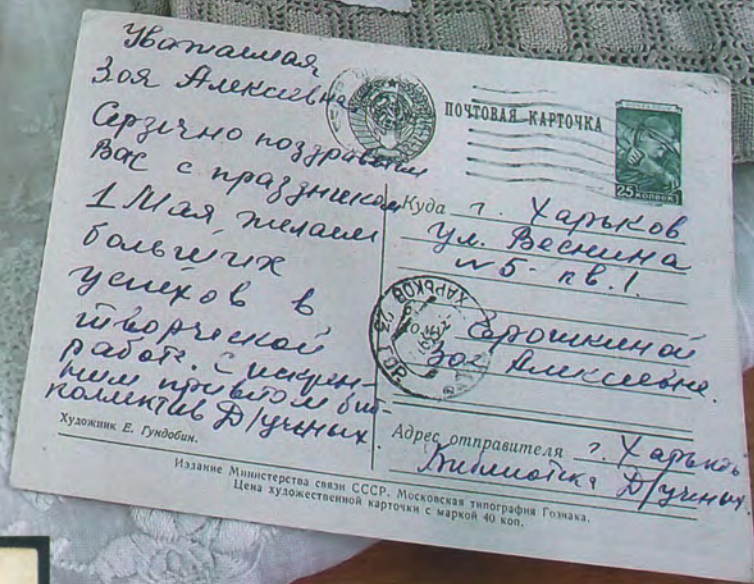 Уважаемая
Зоя Алексеевна
Сердечно поздравляем
Вас с праздником
1 Мая желаем
больших
успехов в
творческой
работе. С искрен-
ним приветом биб-
коллектив Д/ученых.
Художник Е. Гундобин.
ПОЧТОВАЯ КАРТОЧКА
25 КОПЕЕК
Куда г. Харьков
ул. Веснина
№5 кв. 1.
ХАРЬКОВ 23
Ерошкиной
Зое Алексеевне.
Адрес отправителя г. Харьков
Библиотека Д/ученых.
Издание Министерства связи СССР. Московская типография Гознака.
Цена художественной карточки с маркой 40 коп.